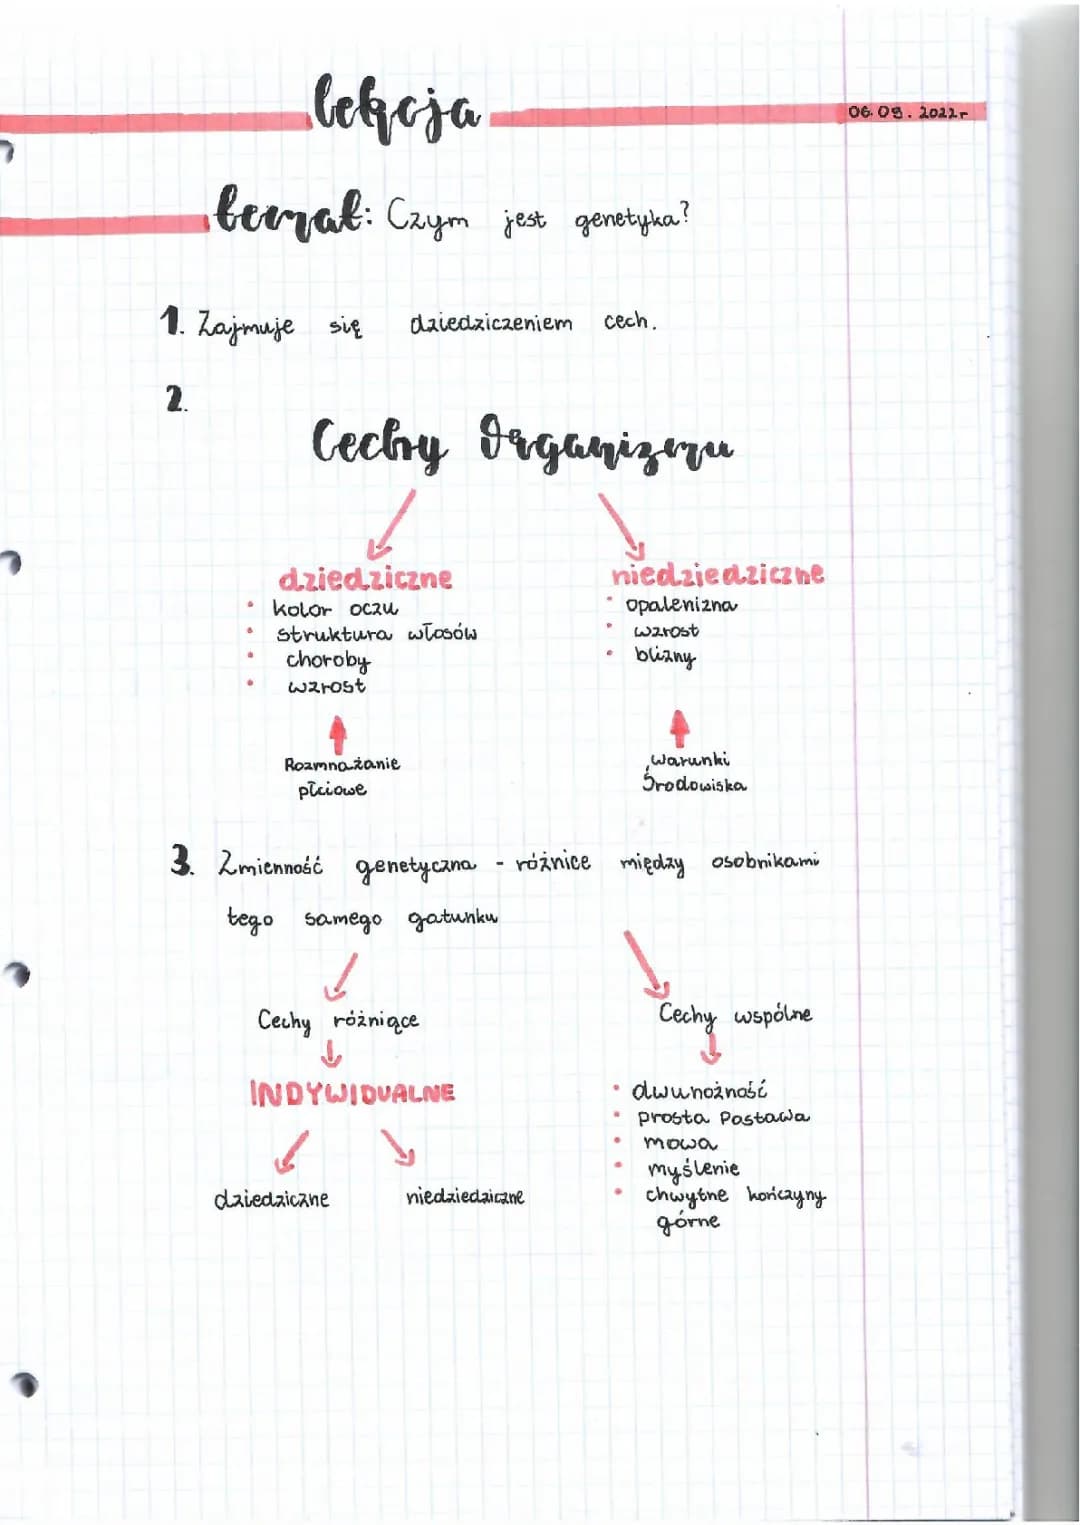 lekcja
06.09.2022r
temat: Czym jest genetyka?
1. Zajmuje się dziedziczeniem cech.
2.
Cechy Organizmu
dziedziczne
• kolor oczu
• struktura włosów
• choroby
• wzrost
Rozmnażanie
płciowe
niedziedziczne
• opalenizna
• wzrost
• blizny
warunki
Środowiska
3. Zmienność genetyczna - różnice między osobnikami
tego samego gatunku
Cechy różniące
INDYWIDUALNE
dziedziczne
niedziedziczne
Cechy wspólne
• dwunożność
• prosta Postawa
• mowa
• myślenie
• chwytne kończyny
górne